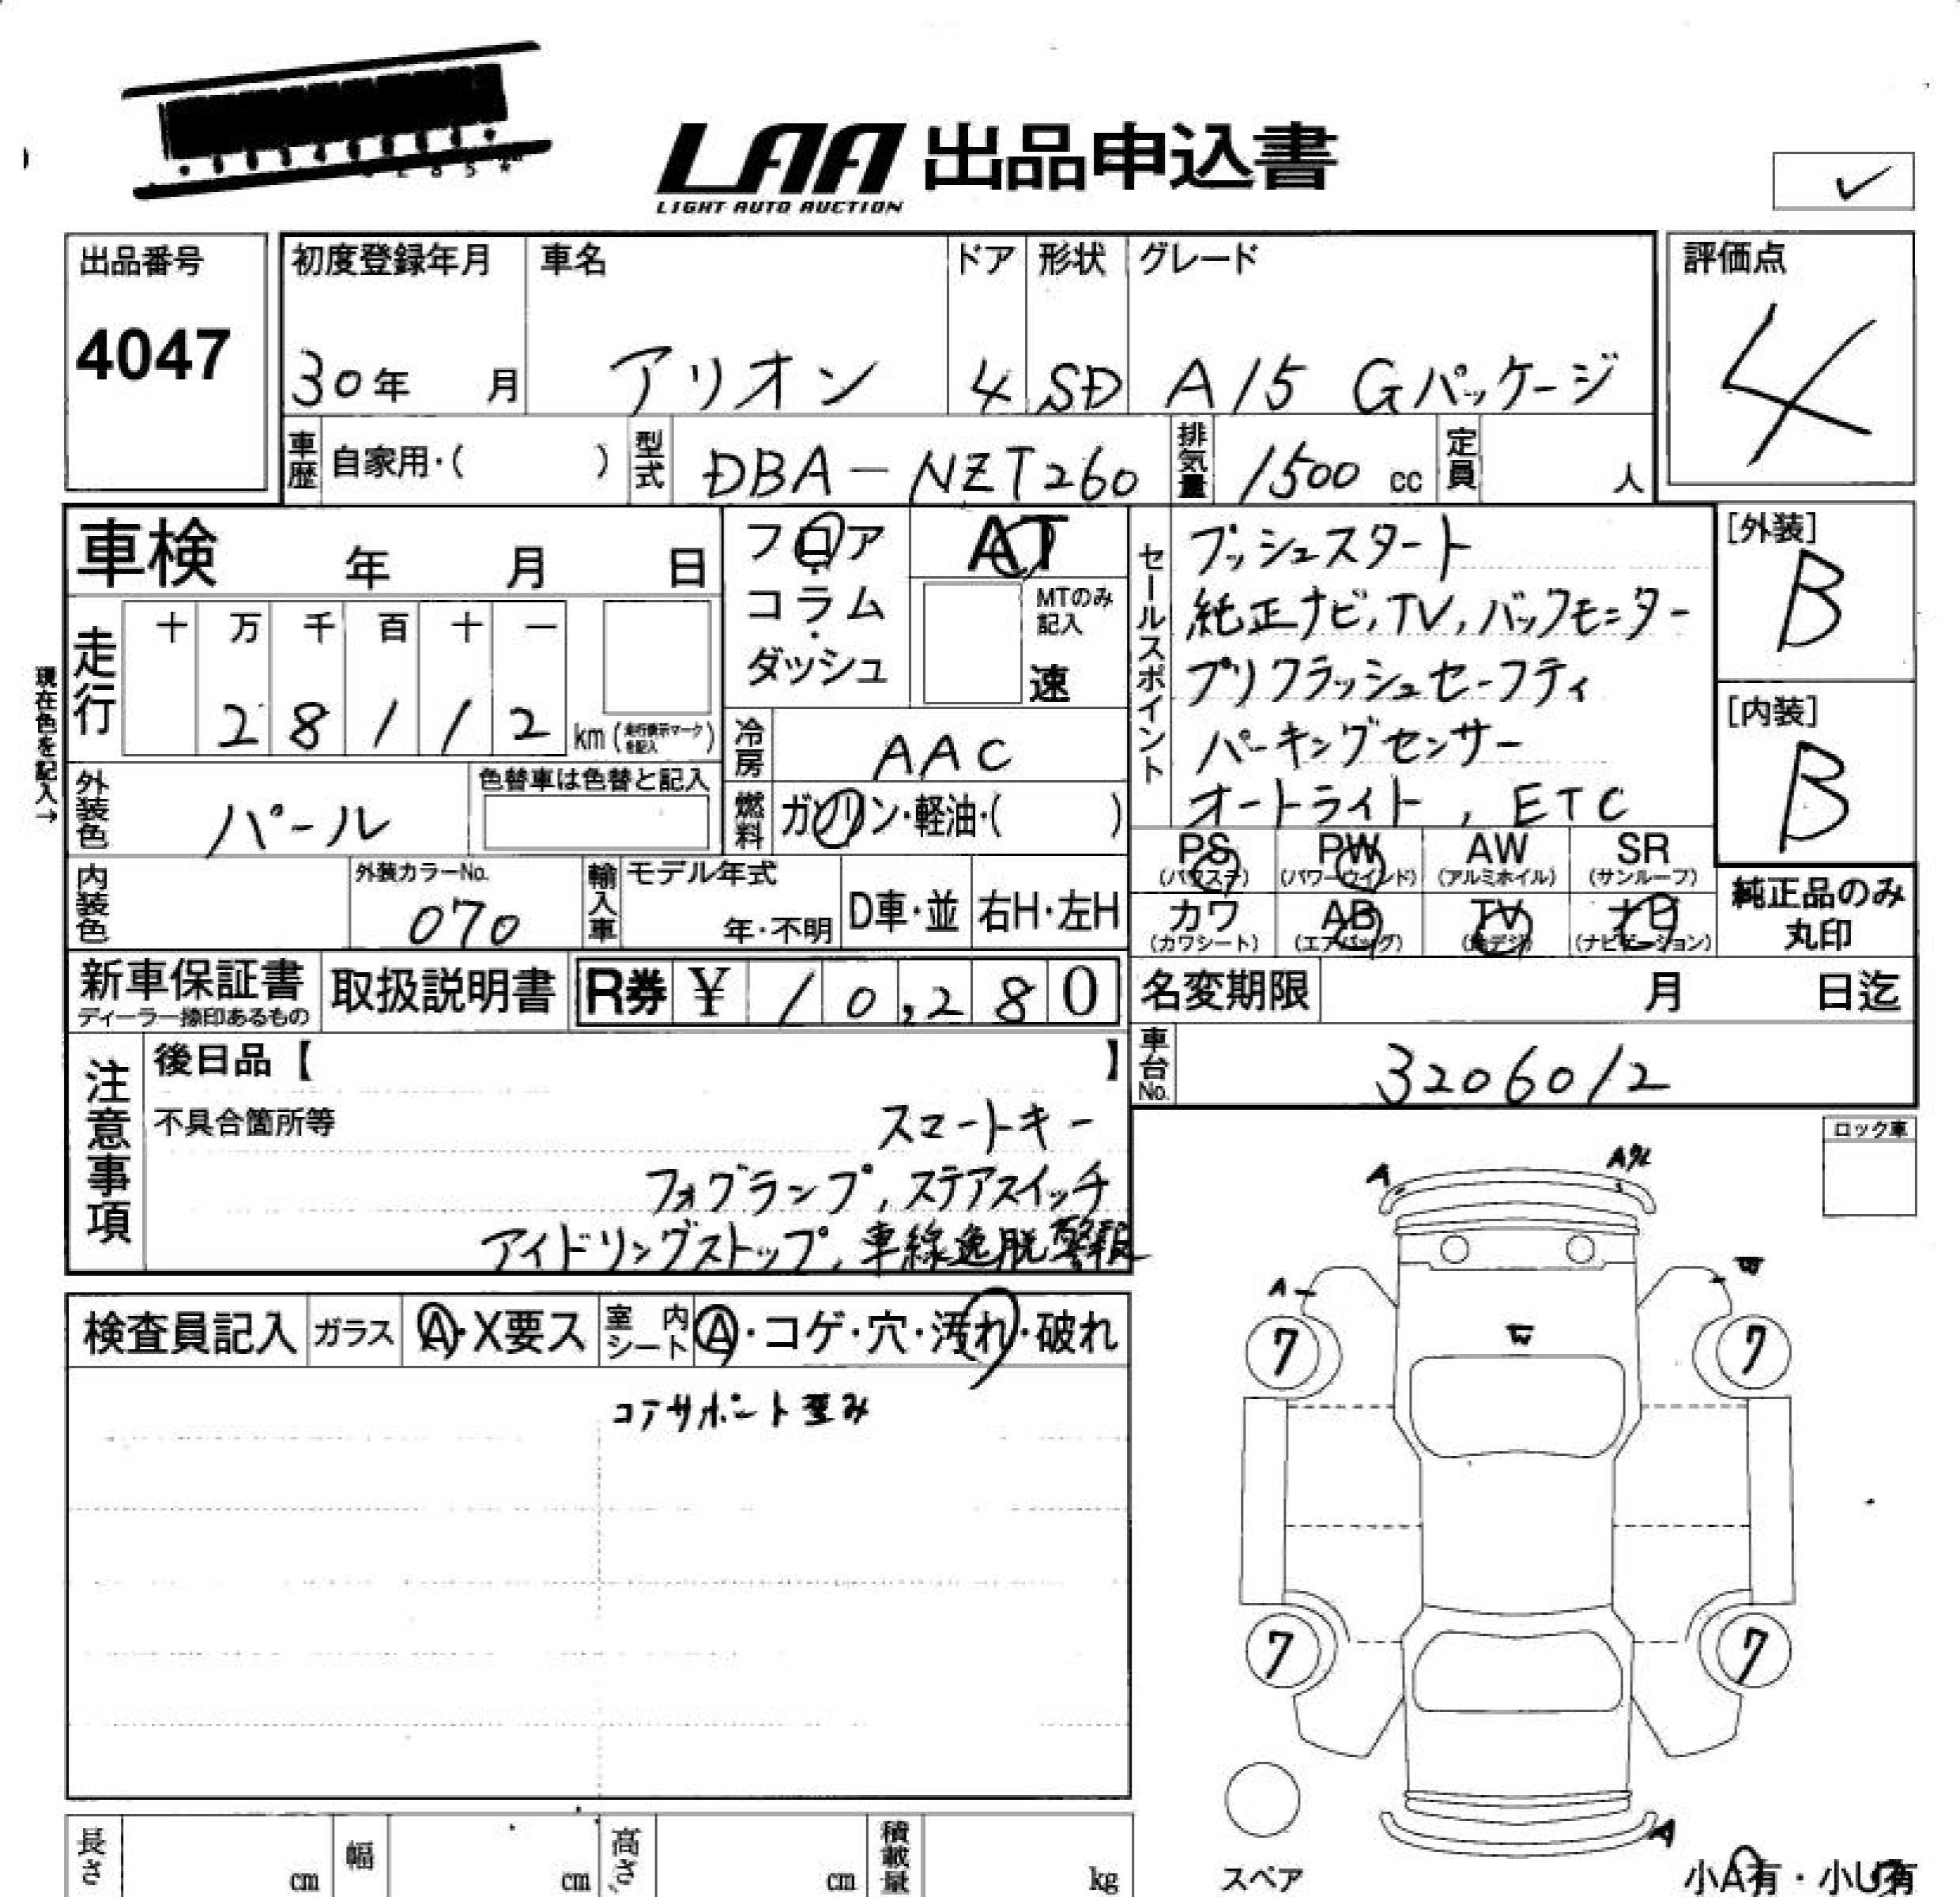 LAA 出品申込書
LIGHT AUTO AUCTION
出品番号
4047
初度登録年月 車名 ドア 形状 グレード
30年 月 アリオン 4 SD A15 Gパッケージ
評価点
4
車歴 自家用・( ) 型式 DBA-NZT260 排気量 1500 cc 定員 人
車検 年 月 日
フロア
コラム
ダッシュ
AT
MTのみ記入
速
セールスポイント
プッシュスタート
純正ナビ,TV,バックモニター
プリクラッシュセーフティ
パーキングセンサー
オートライト , ETC
[外装]
B
[内装]
B
現在色を記入→
走行 十 万 千 百 十 一
28112 km (走行表示マークを記入)
冷房 AAC
外装色 パール 色替車は色替と記入
燃料 ガソリン・軽油・( )
内装色 外装カラーNo. 070
輸入車 モデル年式 年・不明 D車・並 右H・左H
PS (パワステ) PW (パワーウインド) AW (アルミホイル) SR (サンルーフ)
カワ (カワシート) AB (エアバッグ) TV (地デジ) ナビ (ナビゲーション)
純正品のみ
丸印
新車保証書 ディーラー捺印あるもの 取扱説明書 R券 ¥ 10,280
名変期限 月 日迄
車台No. 3206012
注意事項
後日品【 】
不具合箇所等
スマートキー
フォグランプ,ステアスイッチ
アイドリングストップ,車線逸脱警報
ロック車
検査員記入 ガラス A・X要ス 室内シート A・コゲ・穴・汚れ・破れ
コアサポート歪み
A
A
W
A
W
7
7
7
7
A
スペア
小A有・小U有
長さ cm 幅 cm 高さ cm 積載量 kg